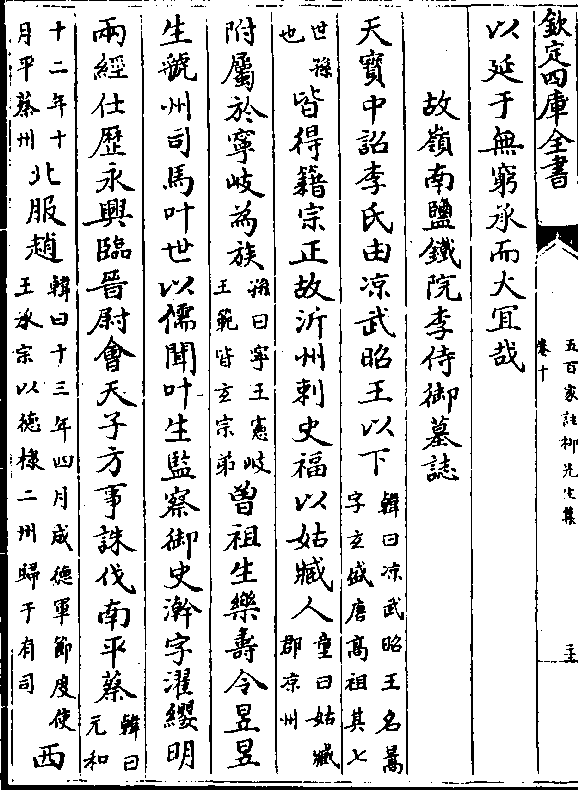 欽定四庫全書
五百家註柳先生集
卷十
二十五
以延于無窮承而大宜哉
故嶺南鹽鐵院李侍御墓誌
天寶中詔李氏由凉武昭王以下韓曰凉武昭王名暠字玄盛唐髙祖其七
世孫也皆得籍宗正故沂州刺史福以姑臧人童曰姑臧郡凉州
附屬於寧岐為族孫曰寧王憲岐王範皆玄宗弟曽祖生樂壽令昱昱
生虢州司馬叶世以儒聞叶生監察御史澣字濯纓明
兩經仕歴永興臨晉尉會天子方事誅伐南平蔡韓曰元和
十二年十月平蔡州北服趙韓曰十三年四月成德軍節度使王承宗以德棣二州歸于有司西